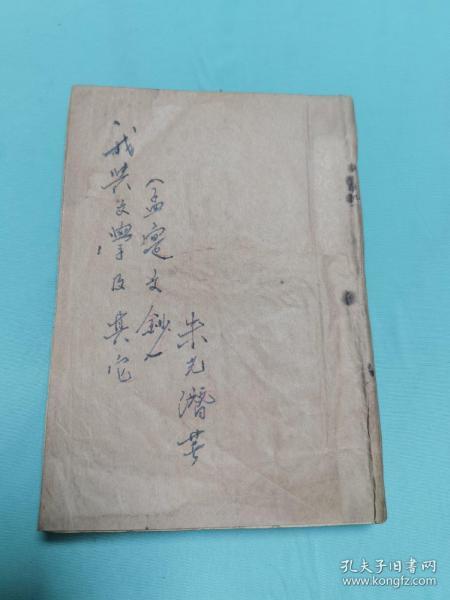 我與文學及其它
(孟實文鈔)
朱光潛著
孔夫子旧书网
www.kongfz.com